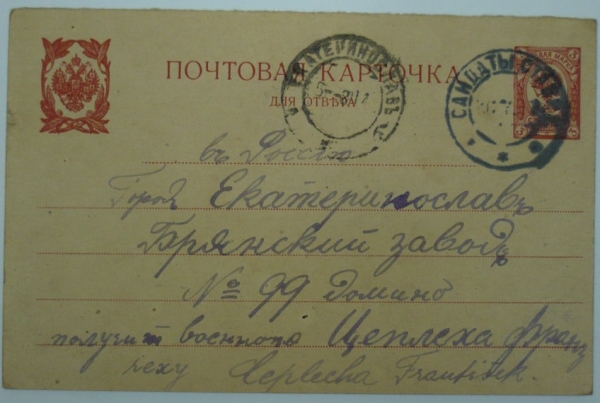 ПОЧТОВАЯ КАРТОЧКА
ДЛЯ ОТВѢТА
САЙДАТЫ
въ Россію
Город Екатеринославъ
Брянский заводъ
№ 99 Домино
получит военноп Цеплеха Франц
чеху Ceplecha František.